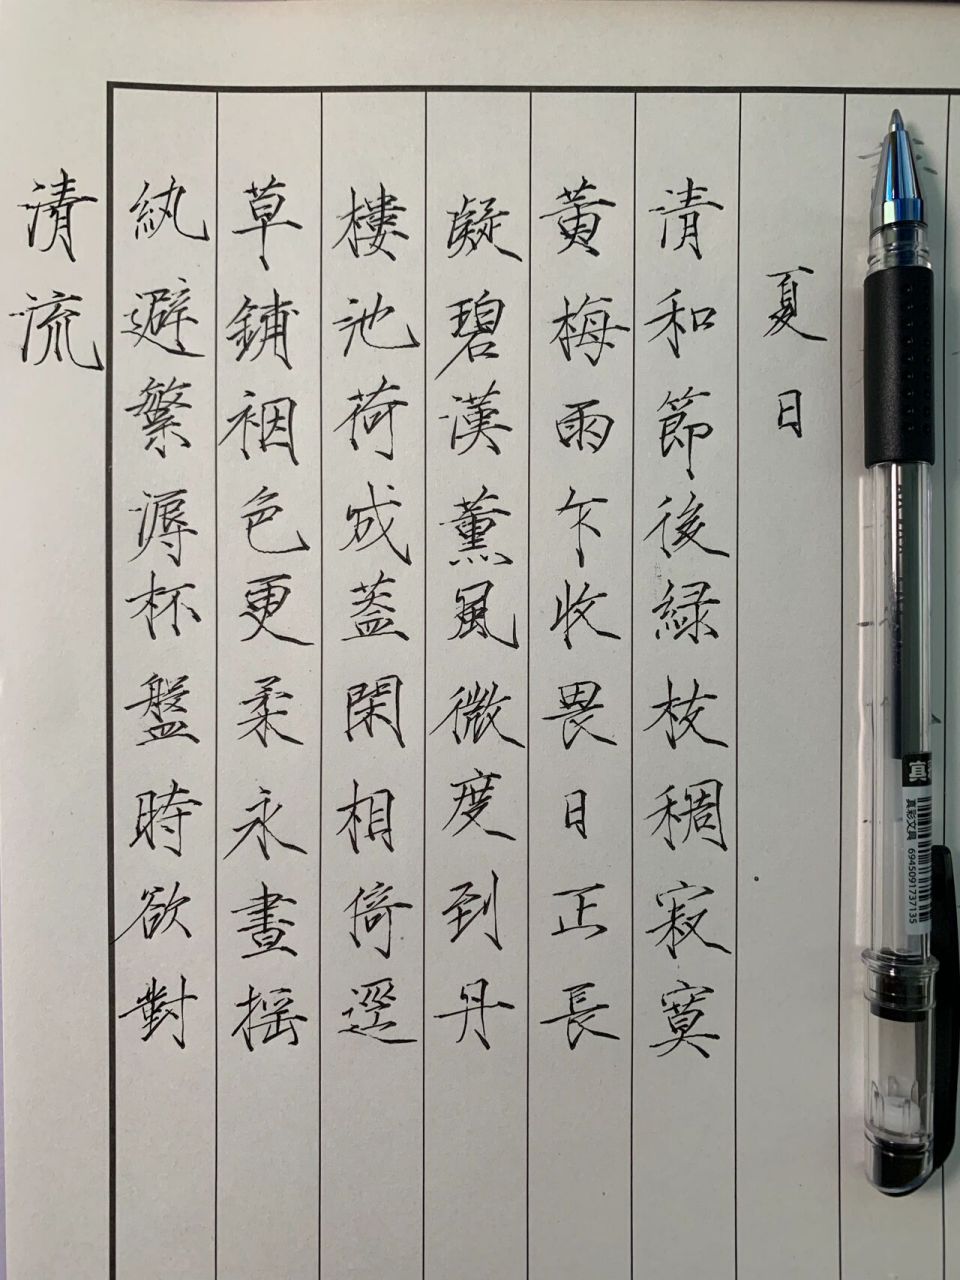 夏日
清和節後綠枝稠寂寞
黄梅雨乍收畏日正長
凝碧漢薰風微度到丹
樓池荷成蓋閑相倚逕
草鋪裀色更柔永晝搖
紈避繁溽杯盤時欲對
清流
真彩文具 6945091737135